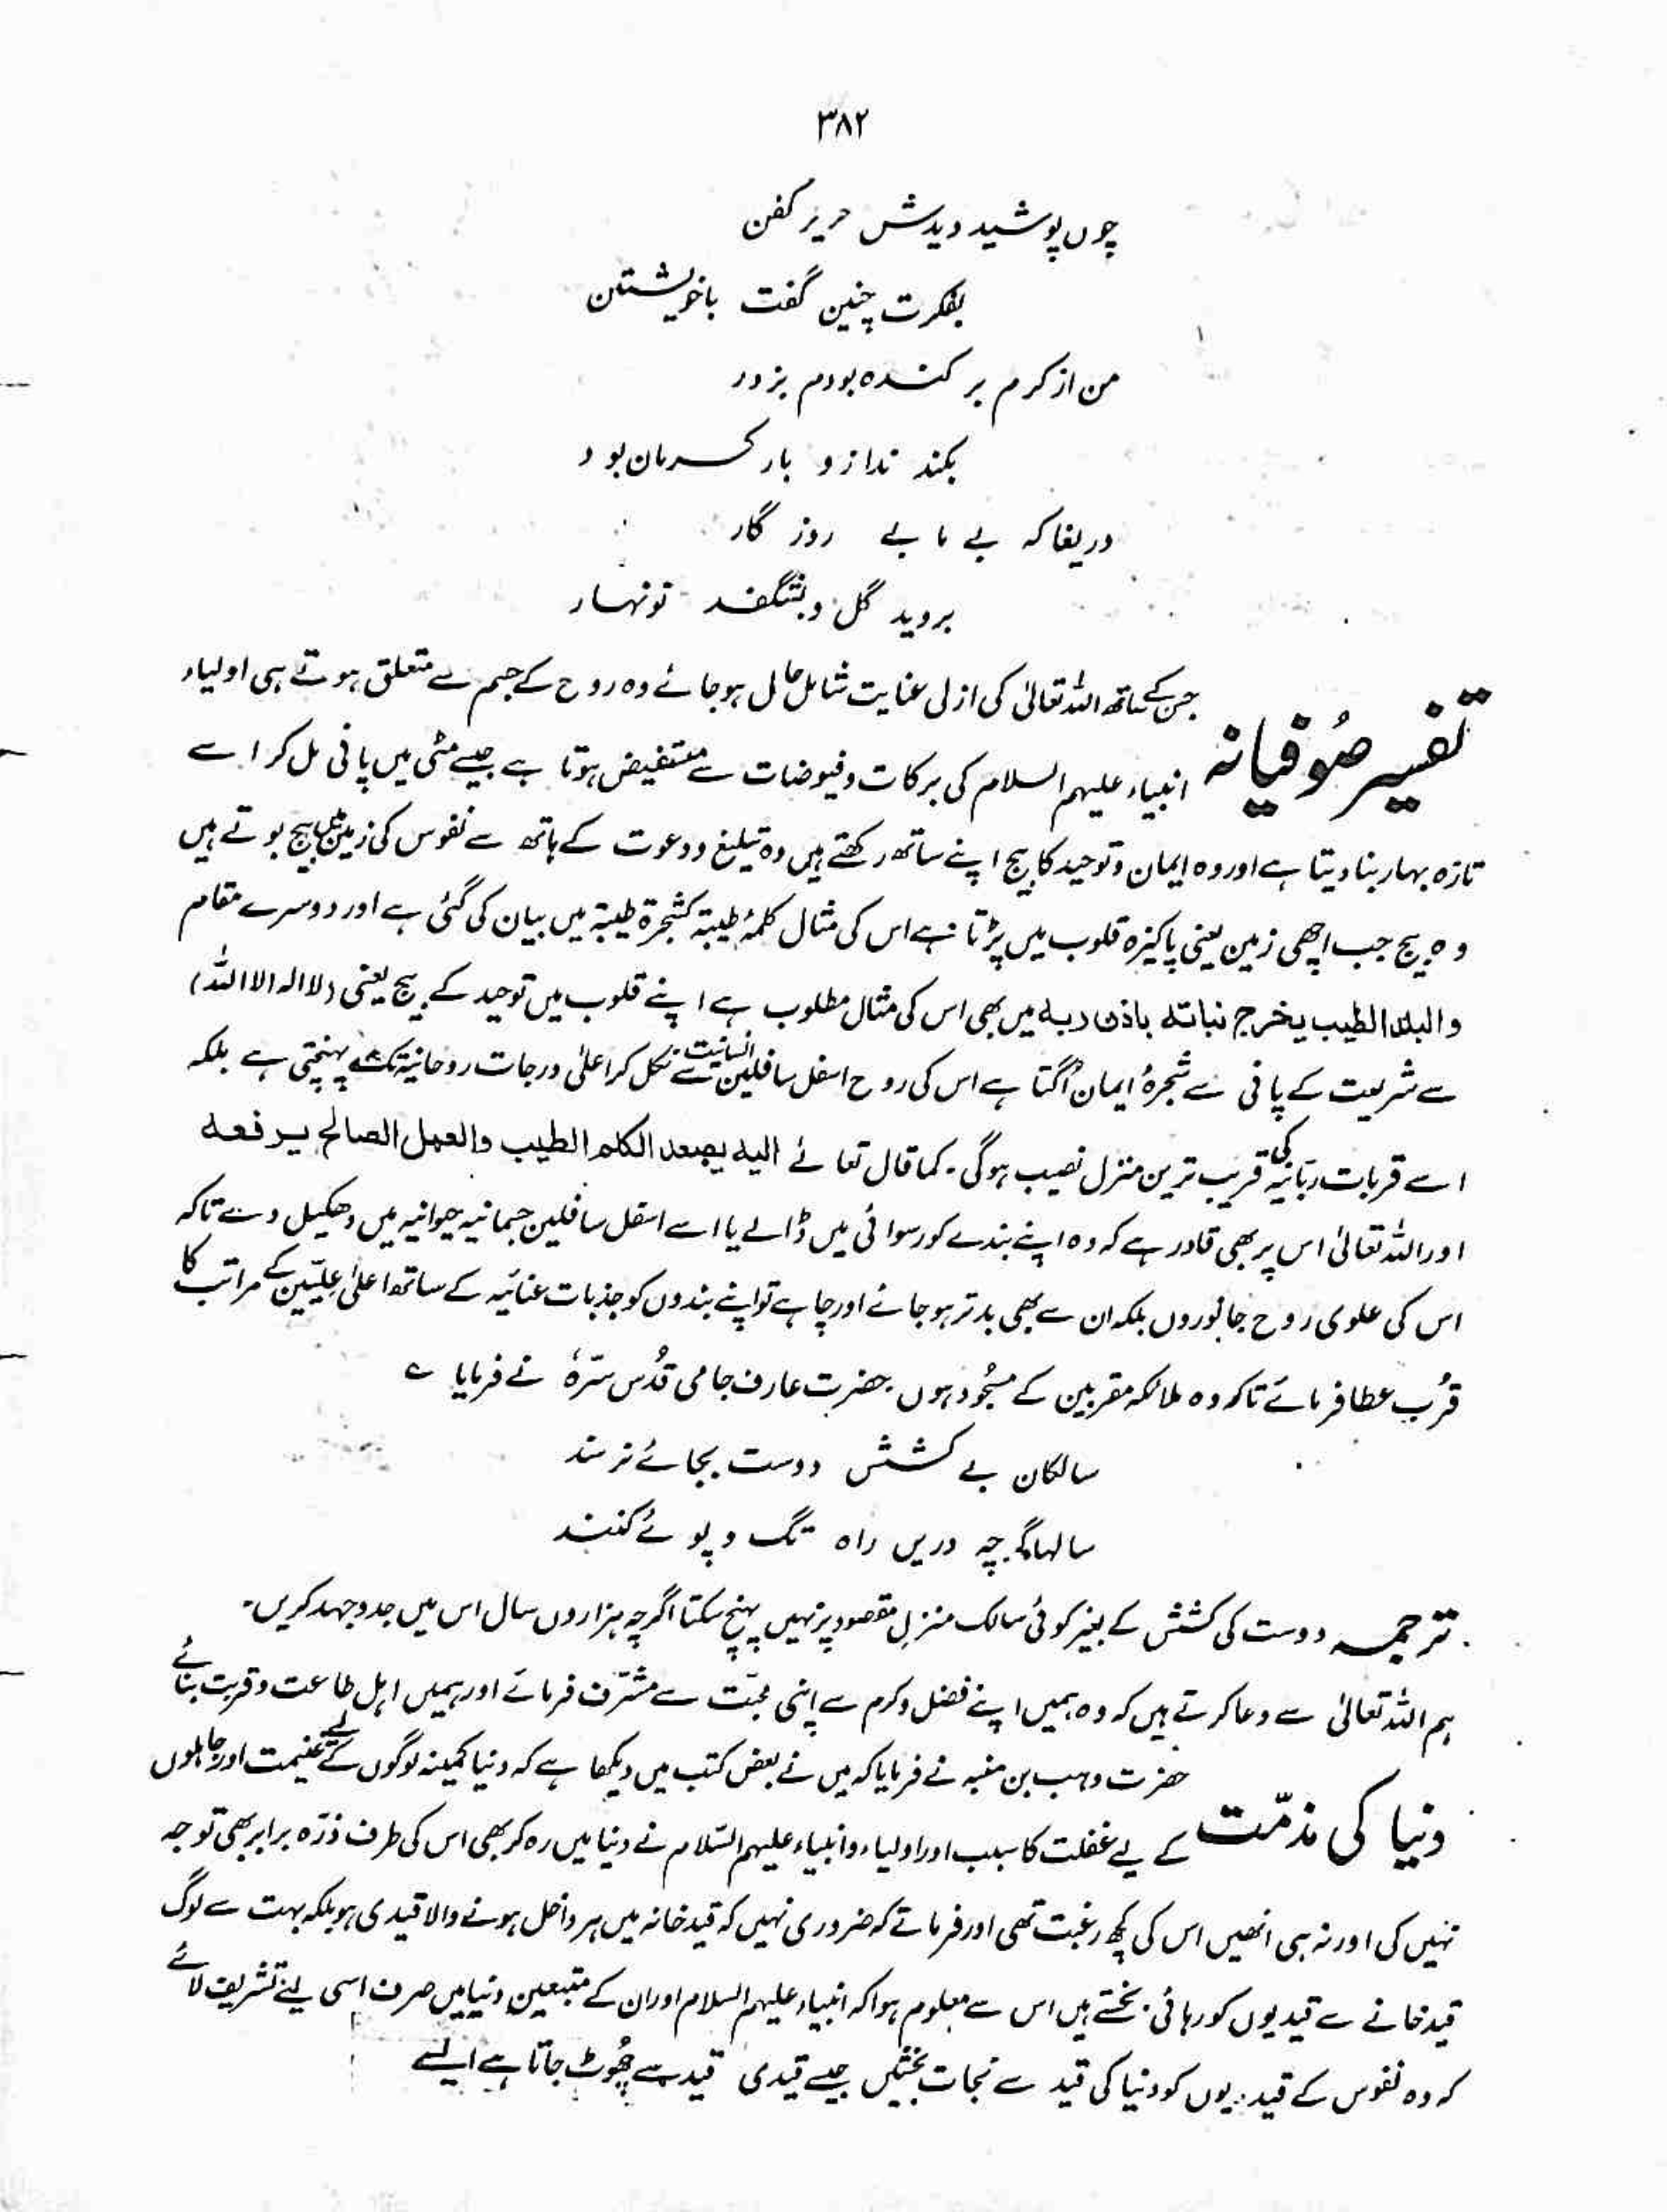 ۳۸۲
چوں پوشید دیدش حریر کفن
بفکرت چنین گفت باخویشتن
من از کرم بر کندہ بودم بزور
بکند ندازو بار کرمان بود
دریغا کہ بے ما بے روز گار
بروید گل و بشگفد نونہار
جن کے ساتھ اللہ تعالیٰ کی ازلی عنایت شامل حال ہوجائے وہ روح کے جسم سے متعلق ہوتے ہی اولیاء
تفسیر صُوفیانہ
انبیاء علیہم السلام کی برکات وفیوضات سے مستفیض ہوتا ہے جیسے مٹی میں پانی مل کر اسے
تازہ بہار بنا دیتا ہے اور وہ ایمان و توحید کا بیج اپنے ساتھ رکھتے ہیں وہ تبلیغ و دعوت کے ہاتھ سے نفوس کی زمین میں بیج بوتے ہیں
وہ بیج جب اچھی زمین یعنی پاکیزہ قلوب میں پڑتا ہے اس کی مثال کلمۂ طیبۃ کشجرۃ طیبۃ میں بیان کی گئی ہے اور دوسرے مقام
والبلد الطیب یخرج نباتہ باذن ربہ میں بھی اس کی مثال مطلوب ہے اپنے قلوب میں توحید کے بیج یعنی (لاالہ الا اللہ)
سے شریعت کے پانی سے شجرۂ ایمان اُگتا ہے اس کی روح اسفل سافلین انسانیت سے نکل کر اعلیٰ درجات روحانیۃ تک پہنچتی ہے بلکہ
اسے قربات ربّانیہ کی قریب ترین منزل نصیب ہوگی۔ کما قال تعالےٰ الیہ یصعد الکلم الطیب والعمل الصالح یرفعہ
اور اللہ تعالیٰ اس پر بھی قادر ہے کہ وہ اپنے بندے کو رسوائی میں ڈالے یا اسے اسفل سافلین جسمانیہ حیوانیہ میں دھکیل دے تاکہ
اس کی علوی روح جانوروں بلکہ ان سے بھی بدتر ہوجائے اور چاہے تو اپنے بندوں کو جذبات عنائیہ کے ساتھ اعلیٰ علیّین کے مراتب کا
قُرب عطا فرمائے تاکہ وہ ملائکہ مقربین کے مسجُود ہوں۔ حضرت عارف جامی قُدس سّرہٗ نے فرمایا ؎
سالکان بے کشش دوست بجائے نرسند
سالہا گرچہ دریں راہ تگ و پوئے کنند
ترجمہ دوست کی کشش کے بغیر کوئی سالک منزلِ مقصود پر نہیں پہنچ سکتا اگرچہ ہزاروں سال اس میں جدوجہد کریں۔
ہم اللہ تعالیٰ سے دعا کرتے ہیں کہ وہ ہمیں اپنے فضل وکرم سے اپنی محبّت سے مشرّف فرمائے اور ہمیں اہل طاعت و قربت بنائے
حضرت وہب بن منبہ نے فرمایا کہ میں نے بعض کتب میں دیکھا ہے کہ دنیا کمینہ لوگوں کے لیے غنیمت اور جاہلوں
دنیا کی مذمّت
کے لیے غفلت کا سبب اور اولیاء و انبیاء علیہم السّلام نے دنیا میں رہ کر بھی اس کی طرف ذرّہ برابر بھی توجہ
نہیں کی اور نہ ہی انھیں اس کی کچھ رغبت تھی اور فرماتے کہ ضروری نہیں کہ قید خانہ میں ہر داخل ہونے والا قیدی ہو بلکہ بہت سے لوگ
قید خانے سے قیدیوں کو رہائی بخشتے ہیں اس سے معلوم ہوا کہ انبیاء علیہم السلام اور ان کے متبعین دنیا میں صرف اسی لیے تشریف لائے
کہ وہ نفوس کے قیدیوں کو دنیا کی قید سے نجات بخشیں جیسے قیدی قید سے چھُوٹ جاتا ہے ایسے